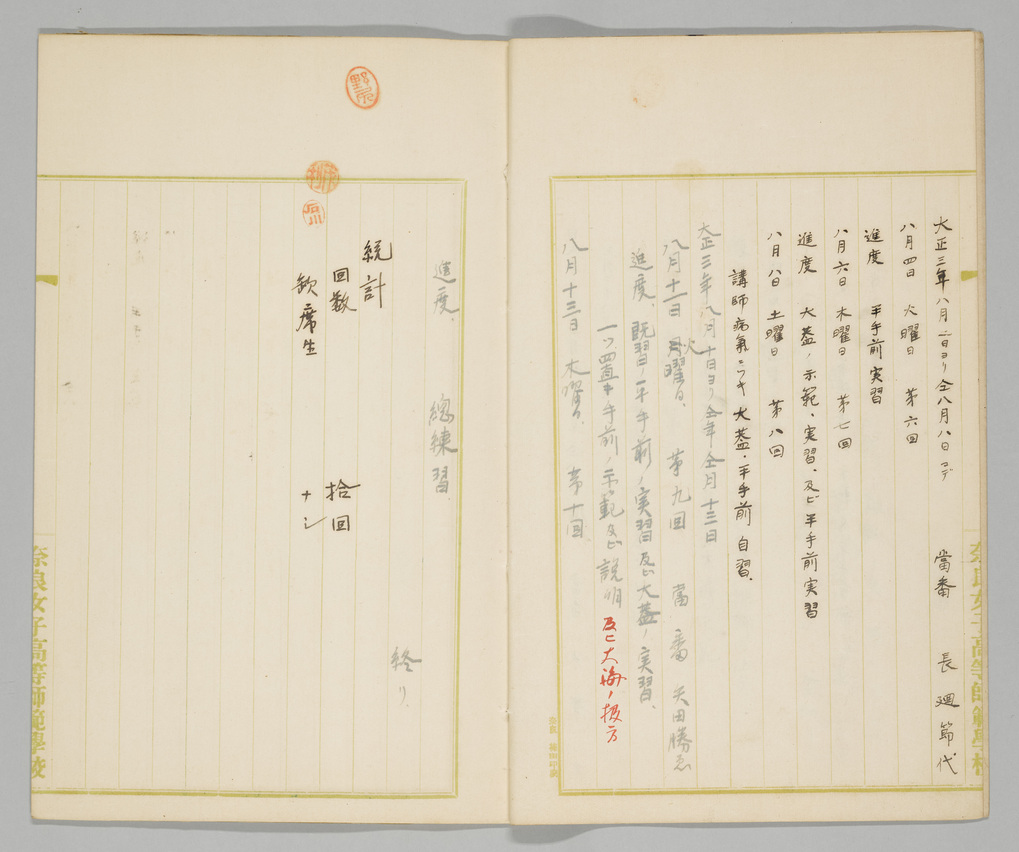 大正三年八月二日ヨリ仝八月八日マデ 當番 長廻節代
八月四日 火曜日 第六回
進度 平手前実習
八月六日 木曜日 第七回
進度 大蓋ノ示範、実習、及ビ平手前実習
八月八日 土曜日 第八回
講師病氣ニツキ大蓋・平手前自習、
大正三年八月十日ヨリ仝年仝月十三日
八月十一日 火曜日、 第九回 當番 矢田勝ゑ
進度、既習ノ平手前ノ実習及ビ大蓋ノ実習、
一ツ置キ手前ノ示範及ビ説明 及ビ大海ノ扱方
八月十三日 木曜日、 第十回
進度、 總練習、
終リ、
統計
回数 拾回
欽席生 ナシ
奈良女子高等師範學校
奈良女子高等師範學校
野尻
石川